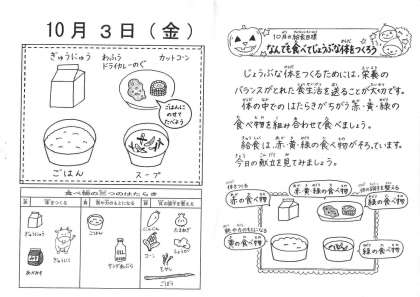 10月3日(金)
ぎゅうにゅう
わふう
ドライカレーのぐ
カットコーン
ごはんに
のせて
たべよう
ごはん
スープ
食べ物の三つのはたらき
ぎゅうにゅう
ごはん
にんじん
たまねぎ
サラダあぶら
コーン
もやし
ごぼう
10月の給食目標
なんでも食べてじょうぶな体をつくろう
じょうぶな体をつくるためには、栄養の
バランスがとれた食生活を送ることが大切です。
体の中でのはたらきがちがう赤・黄・緑の
食べ物を組み合わせて食べましょう。
給食は、赤・黄・緑の食べ物がそろっています。
今日の献立を見てみましょう。
体をつくる
赤の食べ物
赤・黄・緑の食べ物
緑の食べ物
黄の食べ物
緑の食べ物